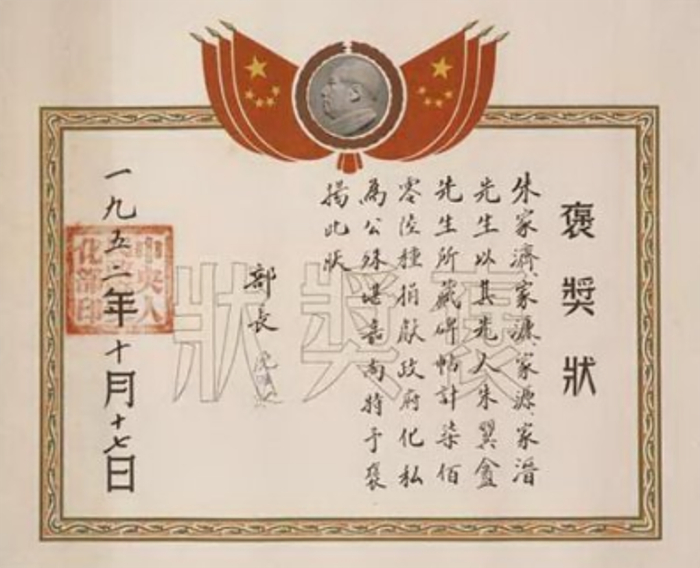 褒獎狀
朱家濟、家濂、家源、家溍
先生以其先人朱翼盦
先生所藏碑帖計柒佰
零陸種捐獻政府化私
為公殊堪嘉尚特予褒
揚此狀
部長
一九五二年十月十七日
中央人
化部印
褒獎狀